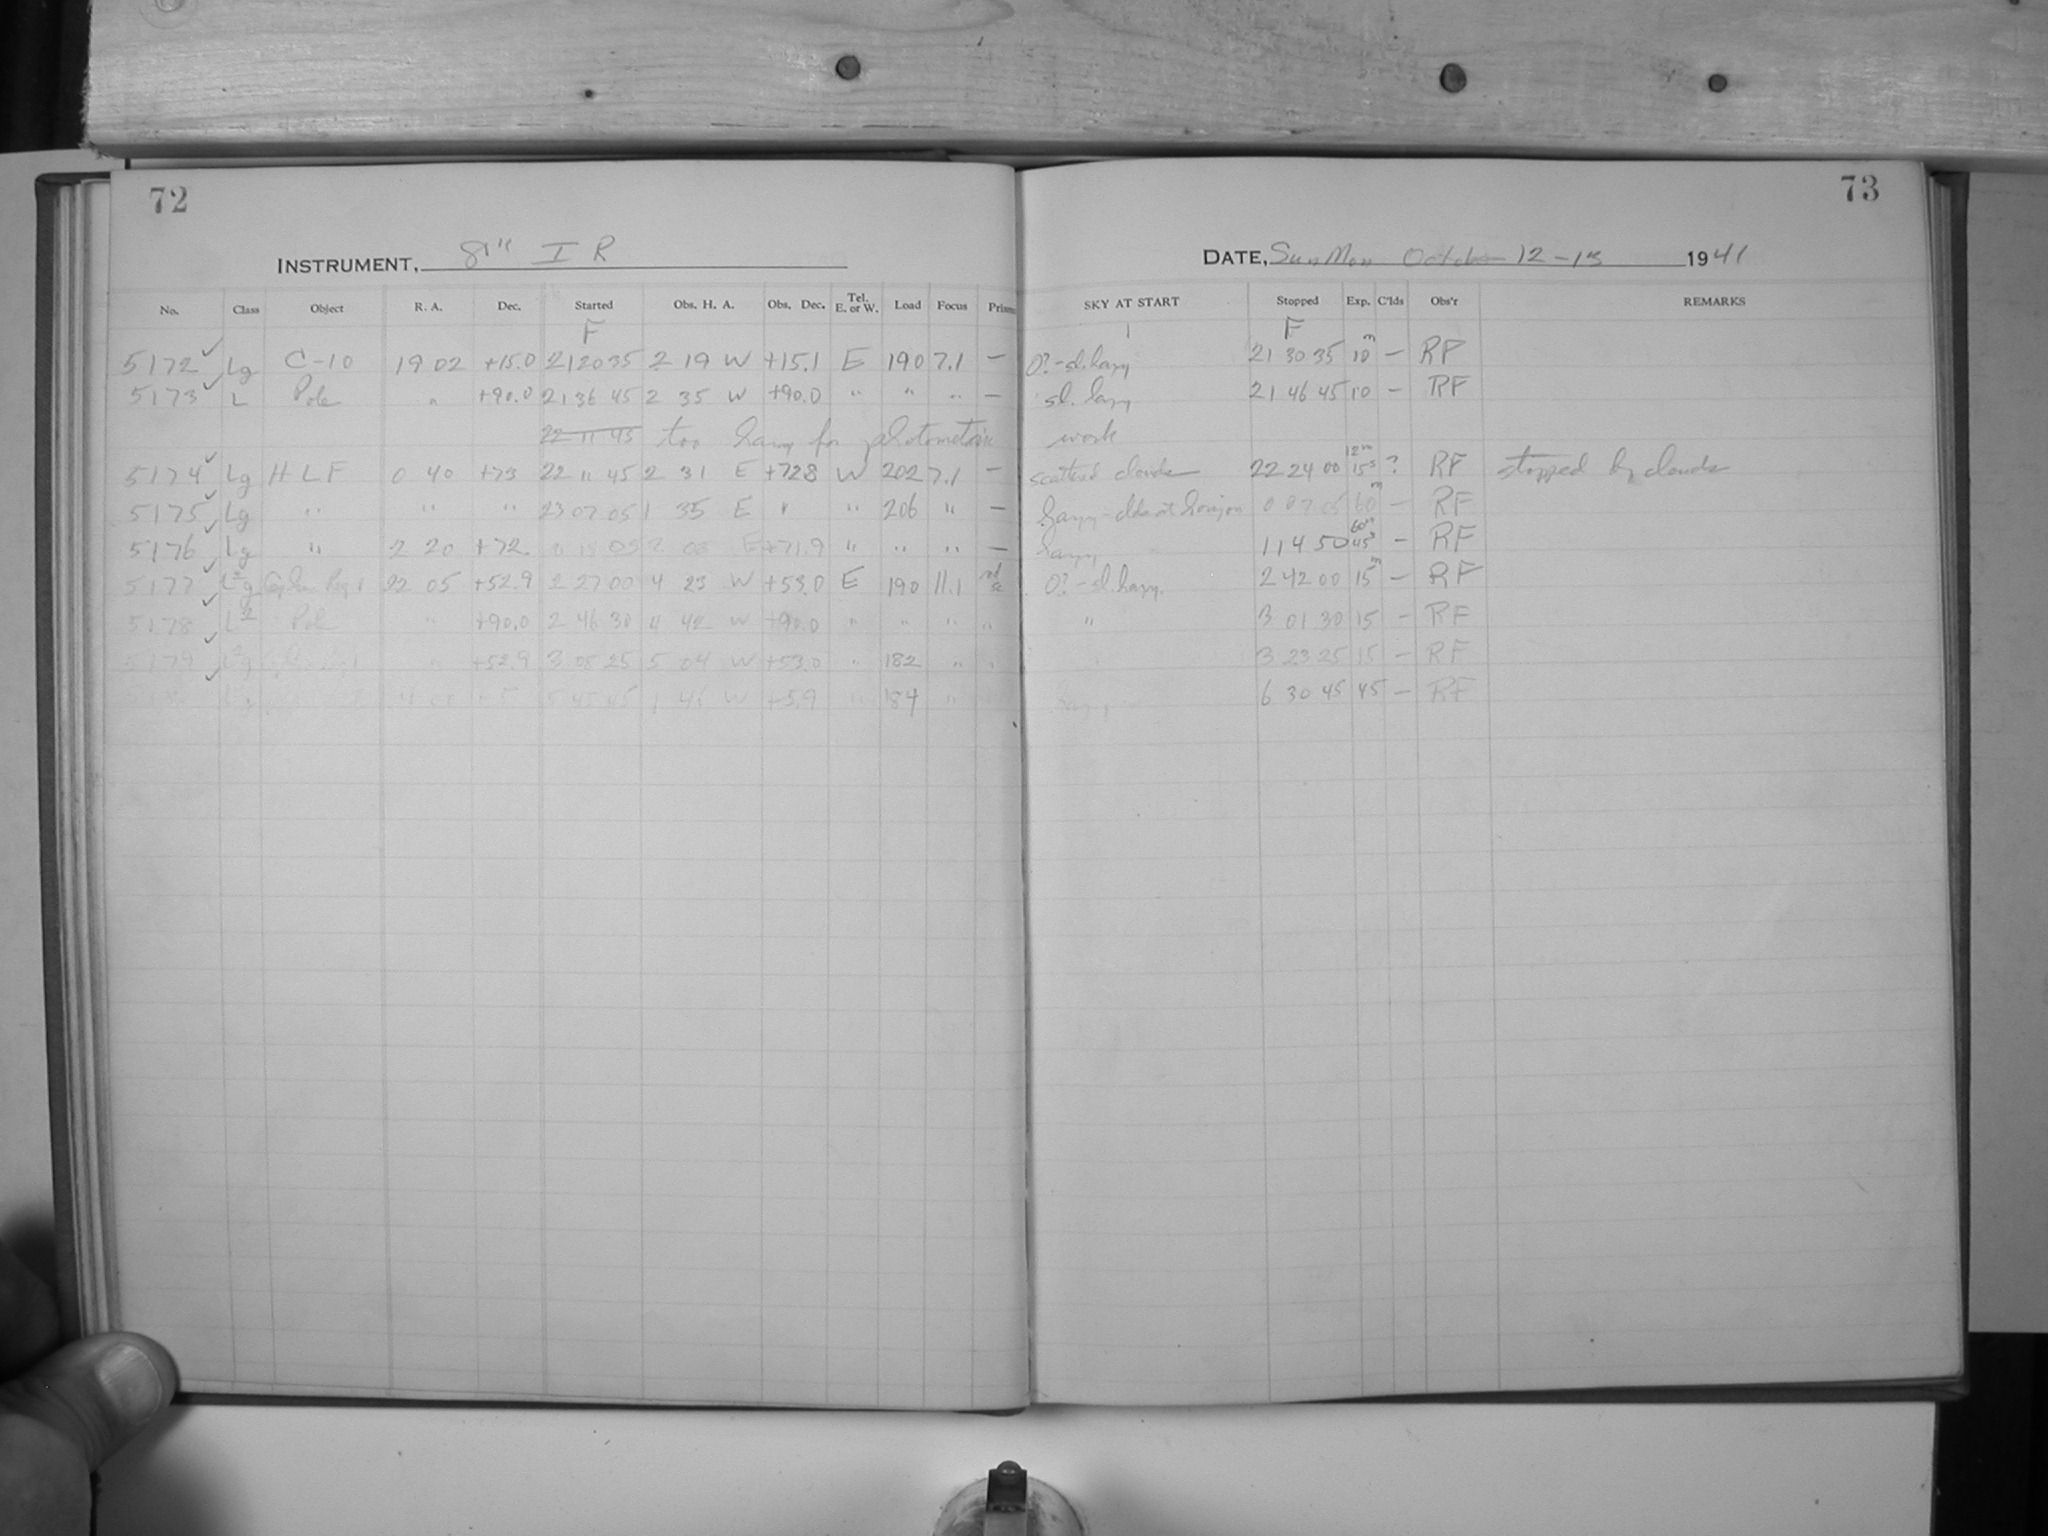 72
73
INSTRUMENT, 8" I R
DATE, Sun Mon October 12-13 1941
No. Class Object R. A. Dec. Started Obs. H. A. Obs. Dec. Tel. E. or W. Load Focus Prism SKY AT START Stopped Exp. C'lds Obs'r REMARKS
F F
5172 ✓ Lg C-10 19 02 +15.0 21 20 35 2 19 W +15.1 E 190 7.1 — 0?-sl. hazy 21 30 35 10m — RF
5173 ✓ L Pole " +90.0 21 36 45 2 35 W +90.0 " " " — sl. hazy 21 46 45 10 — RF
22 11 45 too hazy for photometric work
5174 ✓ Lg H L F 0 40 +73 22 11 45 2 31 E +72.8 W 202 7.1 — scattered clouds 22 24 00 12m 15s ? RF stopped by clouds
5175 ✓ Lg " " " 23 07 05 1 35 E " " 206 " — hazy - clds at horizon 0 07 05 60m — RF
5176 ✓ Lg " 2 20 +72 05 2 E +71.9 " " " — hazy 1 14 50 60m 45s — RF
5177 ✓ L²g 22 05 +52.9 2 27 00 4 23 W +53.0 E 190 11.1 0?-sl. hazy. 2 42 00 15m — RF
5178 ✓ L² Pole " +90.0 2 46 30 4 42 W +90.0 " " " " " 3 01 30 15 — RF
5179 ✓ L²g " +52.9 3 08 25 5 04 W +53.0 " 182 " " 3 23 25 15 — RF
✓ 5 45 45 1 W +5.9 " 184 " hazy 6 30 45 45 — RF